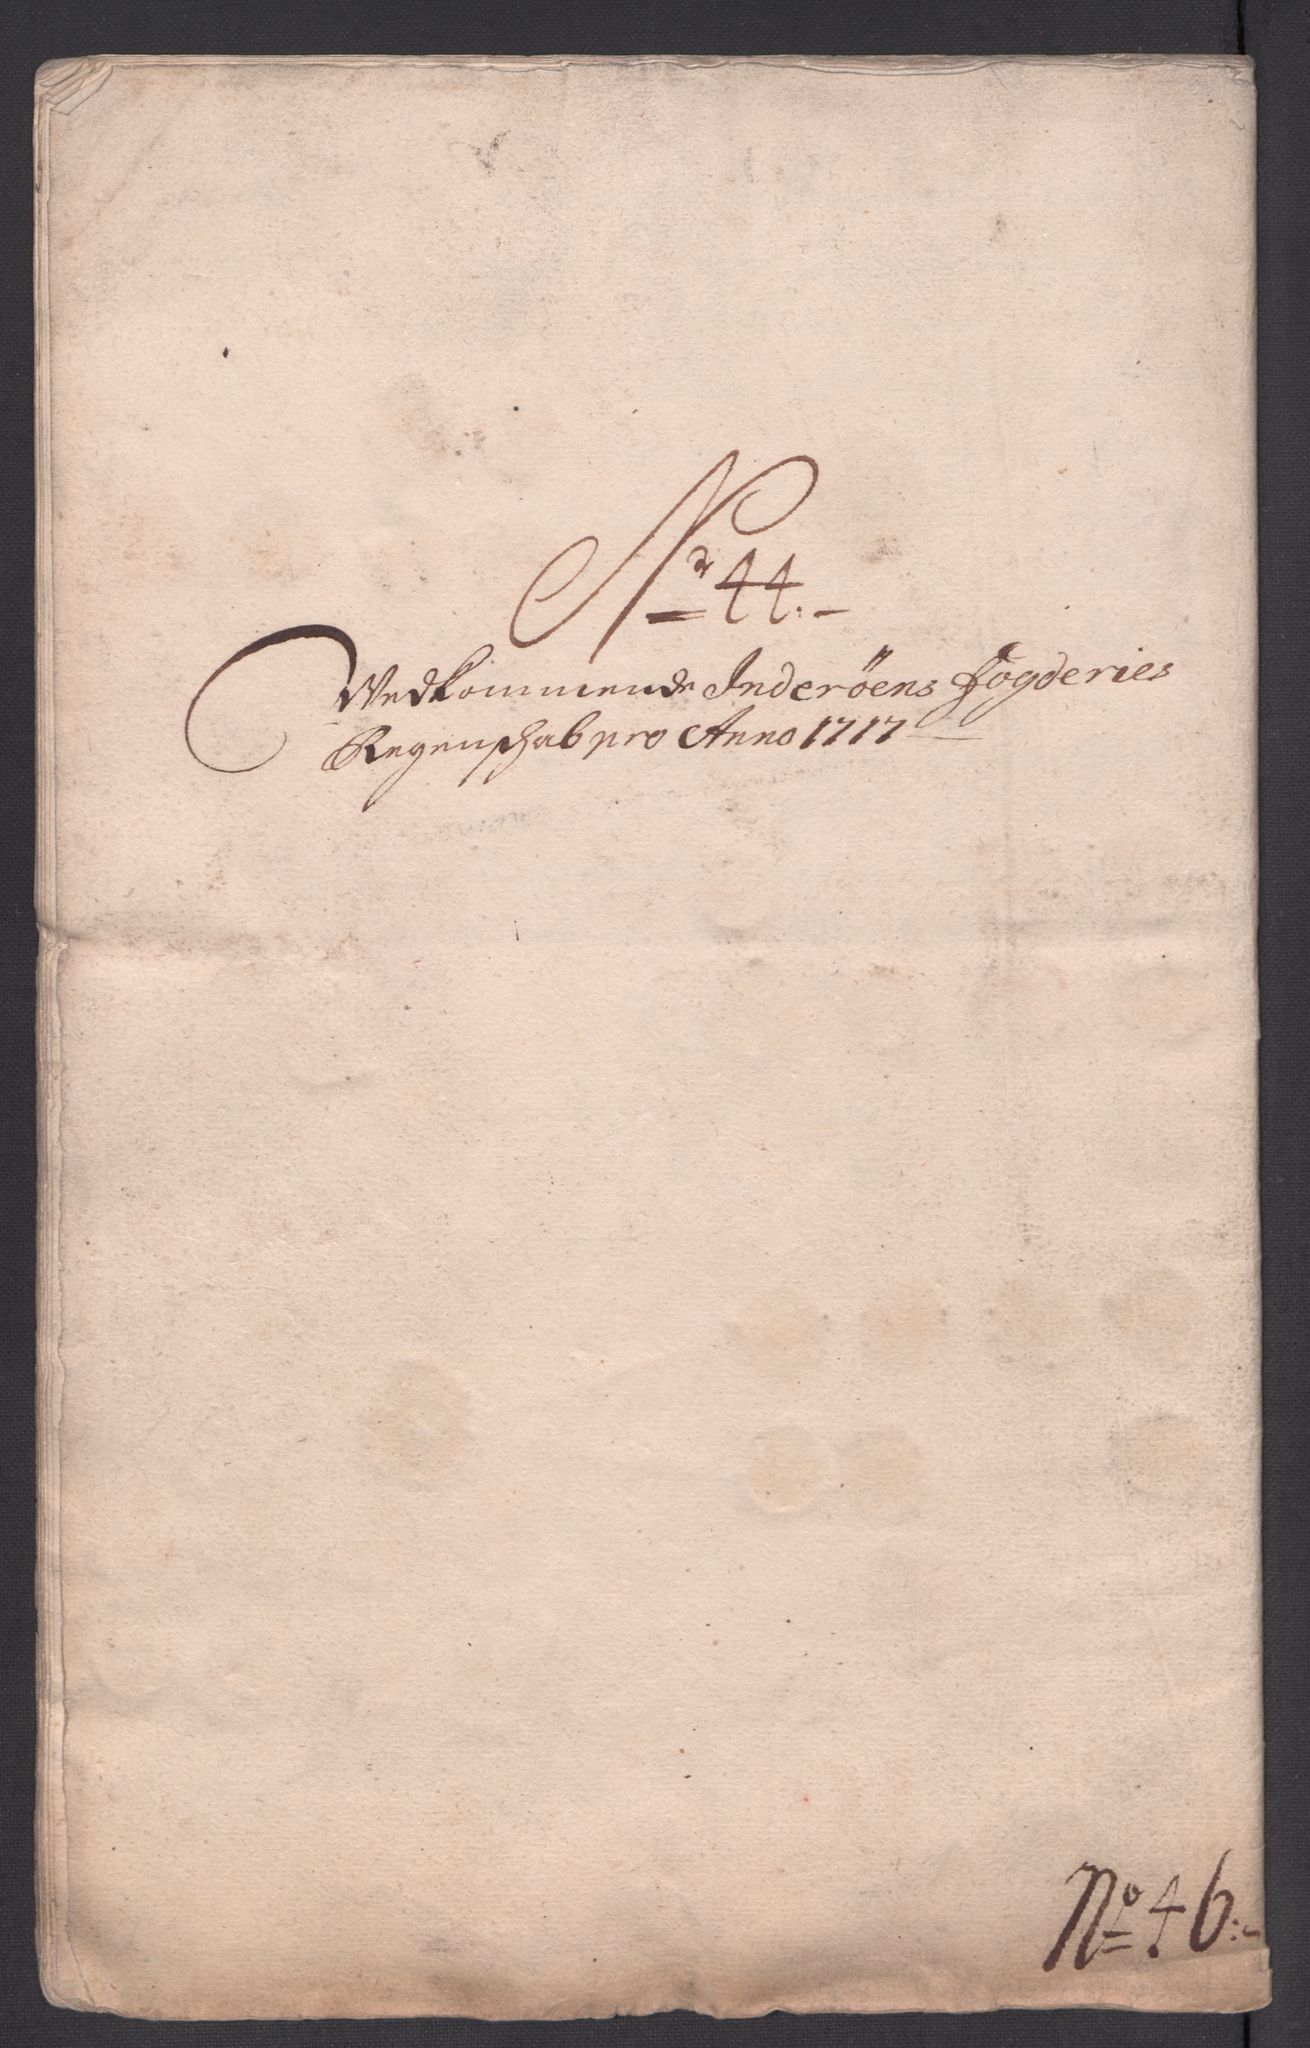 Nr 44.
Vedkommende Inderöens fogderies
Regenschab pro Anno 1717
No 46.